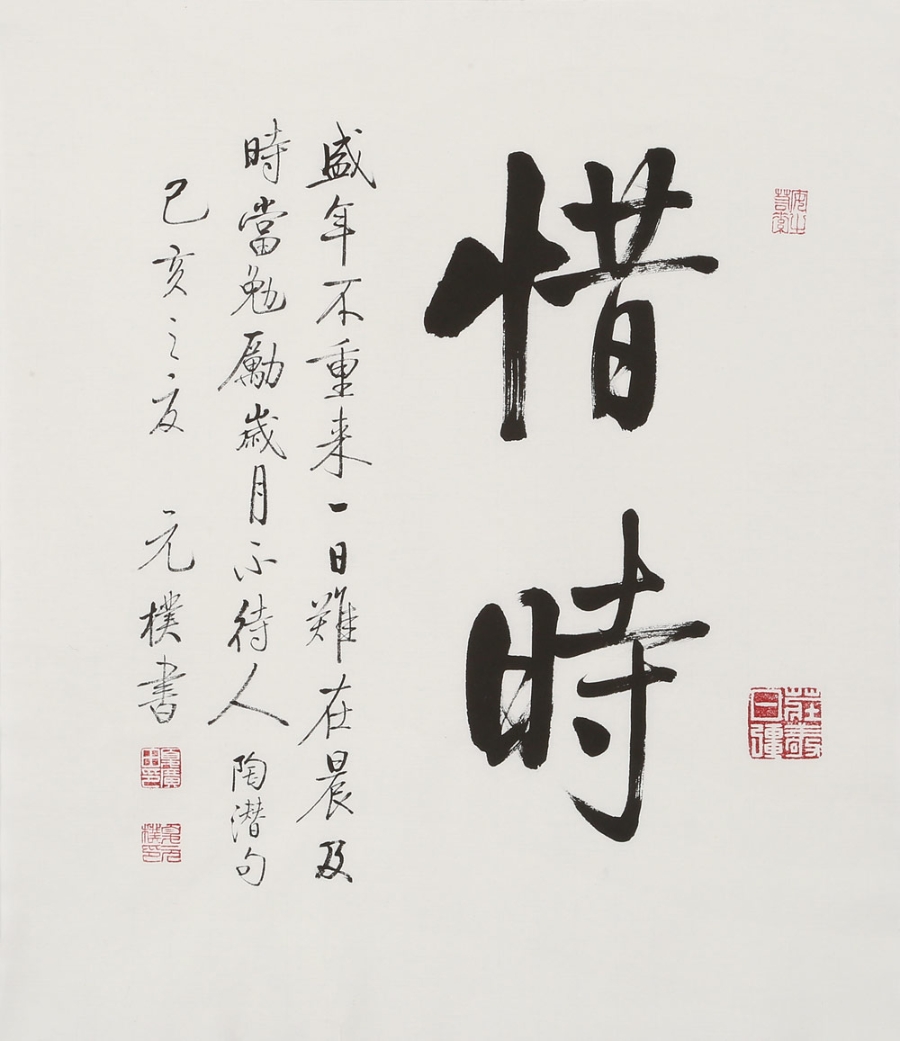 惜時
盛年不重来一日難在晨及
時當勉勵歲月不待人 陶潜句
己亥之夏 元樸書